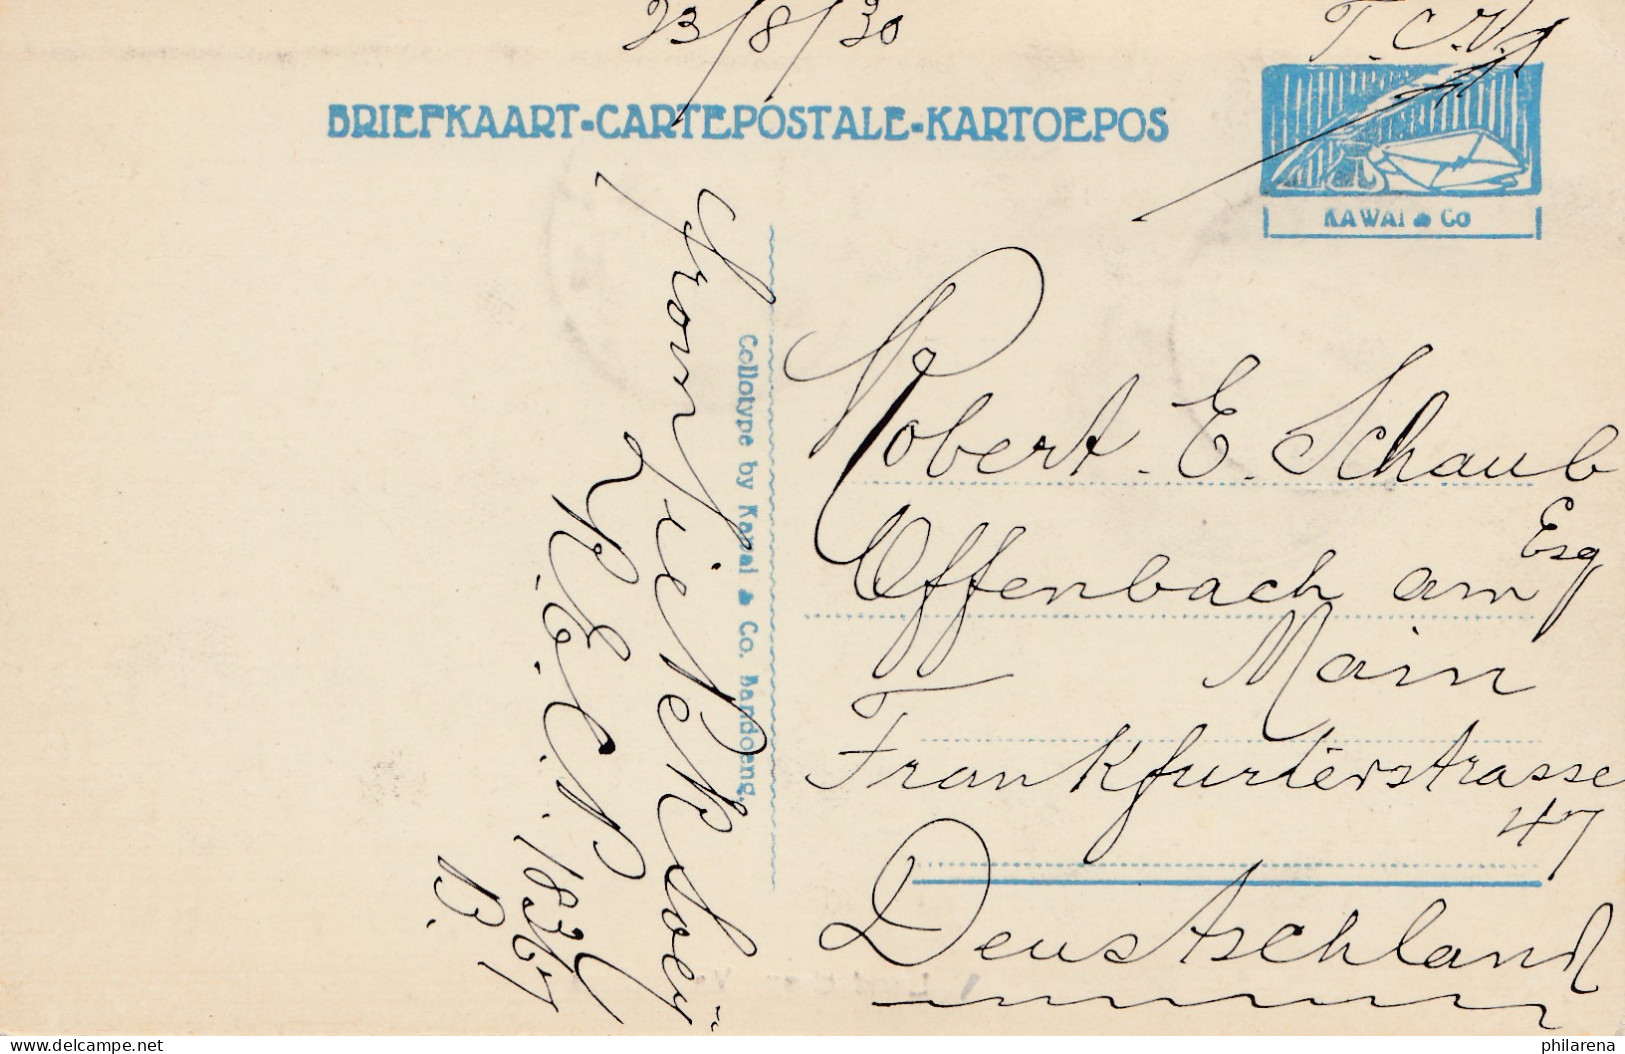 23/8/30
T.C.V.
BRIEFKAART-CARTEPOSTALE-KARTOEPOS
KAWAI & Co
Collotype by Kawai & Co. Bandoeng.
L.R.E.C.N. 18367
B.
Robert E. Schaub
Esq
Offenbach am
Main
Frankfurterstrasse
47
Deutschland
delcampe.net
philarena